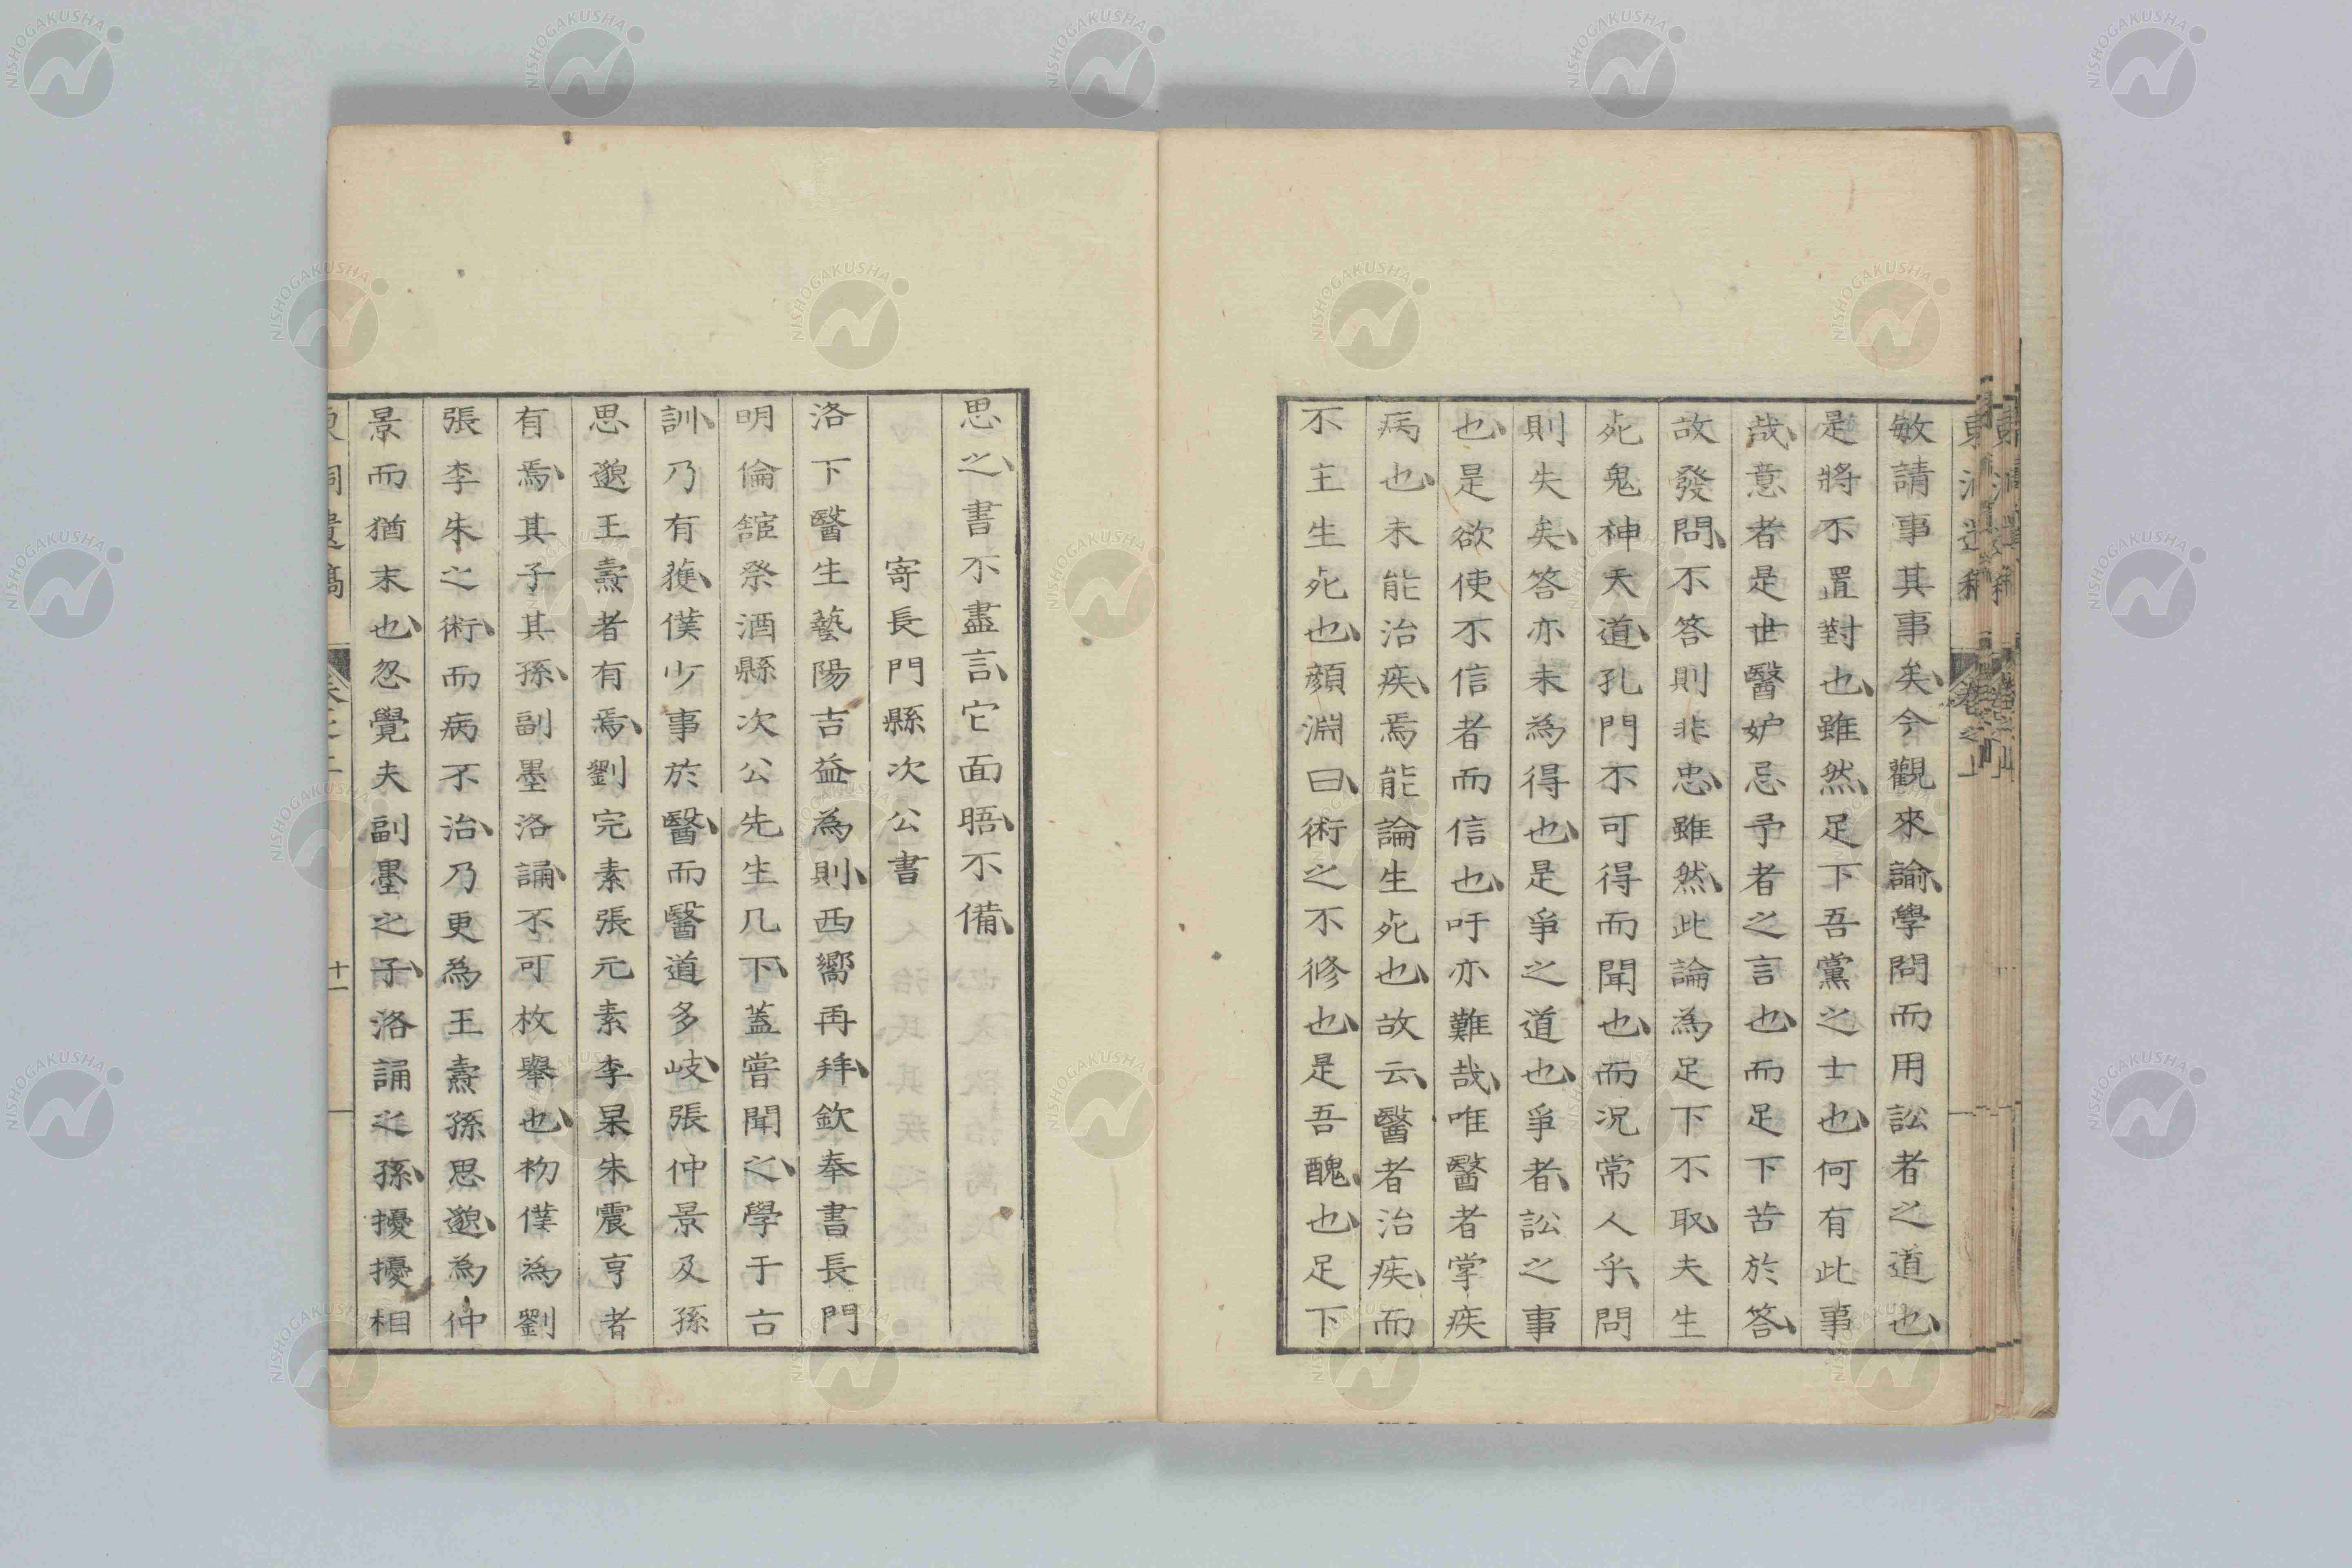 敏請事其事矣、今觀來諭、學問而用訟者之道也、
是將不置對也、雖然、足下吾黨之士也、何有此事
哉、意者是世醫妒忌予者之言也、而足下苦於答、
故發問、不答則非忠、雖然、此論為足下不取、夫生
死鬼神天道、孔門不可得而聞也、而況常人乎、問
則失矣、答亦未為得也、是爭之道也、爭者、訟之事
也、是欲使不信者而信也、吁亦難哉、唯醫者掌疾
病也、未能治疾、焉能論生死也、故云、醫者治疾、而
不主生死也、顏淵曰、術之不修也、是吾醜也、足下
思之、書不盡言、它面晤、不備、
寄長門縣次公書
洛下醫生藝陽吉益為則、西嚮再拜、欽奉書長門
明倫舘祭酒縣次公先生几下、蓋嘗聞之、學于古
訓、乃有獲、僕少事於醫、而醫道多岐、張仲景及孫
思邈王燾者有焉、劉完素張元素李杲朱震亨者
有焉、其子其孫、副墨洛誦、不可枚舉也、初僕為劉
張李朱之術、而病不治、乃更為王燾孫思邈、為仲
景而猶末也、忽覺夫副墨之子、洛誦之孫、擾擾相
東洞遺稿 卷之上 十一
NISHOGAKUSHA